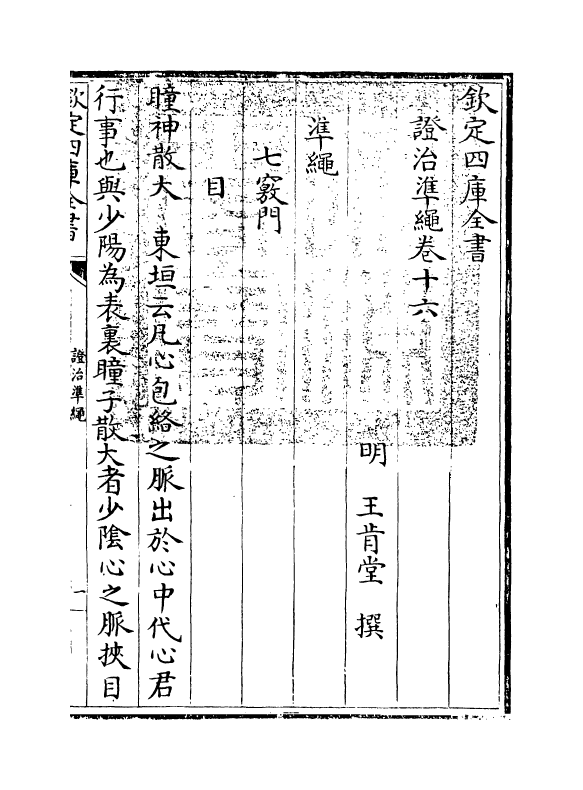 欽定四庫全書
證治準繩卷十六
明　王肯堂　撰
準繩
七竅門
目
瞳神散大　東垣云凡心包絡之脈出於心中代心君
行事也與少陽為表裏瞳子散大者少陰心之脈挾目
欽定四庫全書
證治準繩
一